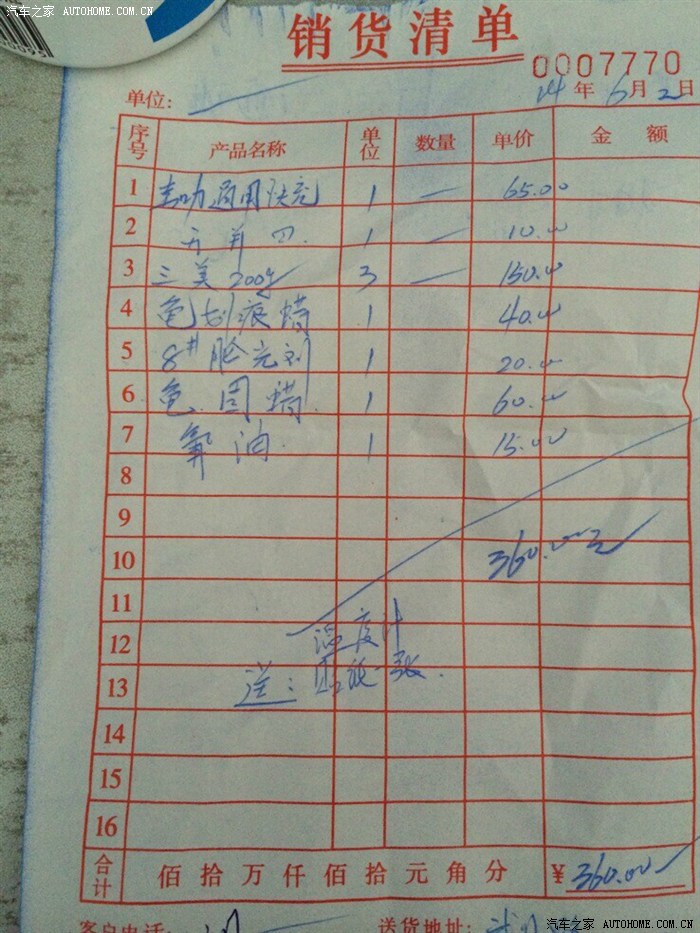 汽车之家 AUTOHOME.COM.CN
销货清单
0007770
单位:
14 年 6 月 2 日
序号 产品名称 单位 数量 单价 金额
1 1 — 65.00
2 1 — 10.00
3 三美 200g 3 — 150.00
4 色划痕蜡 1 40.00
5 8# 1 20.00
6 色固蜡 1 60.00
7 油 1 15.00
8
9
10 360.00元
11
12 温度计
13 送: 一张
14
15
16
合计 佰拾万仟佰拾元角分 ¥ 360.00
客户电话: 送货地址:
汽车之家 AUTOHOME.COM.CN